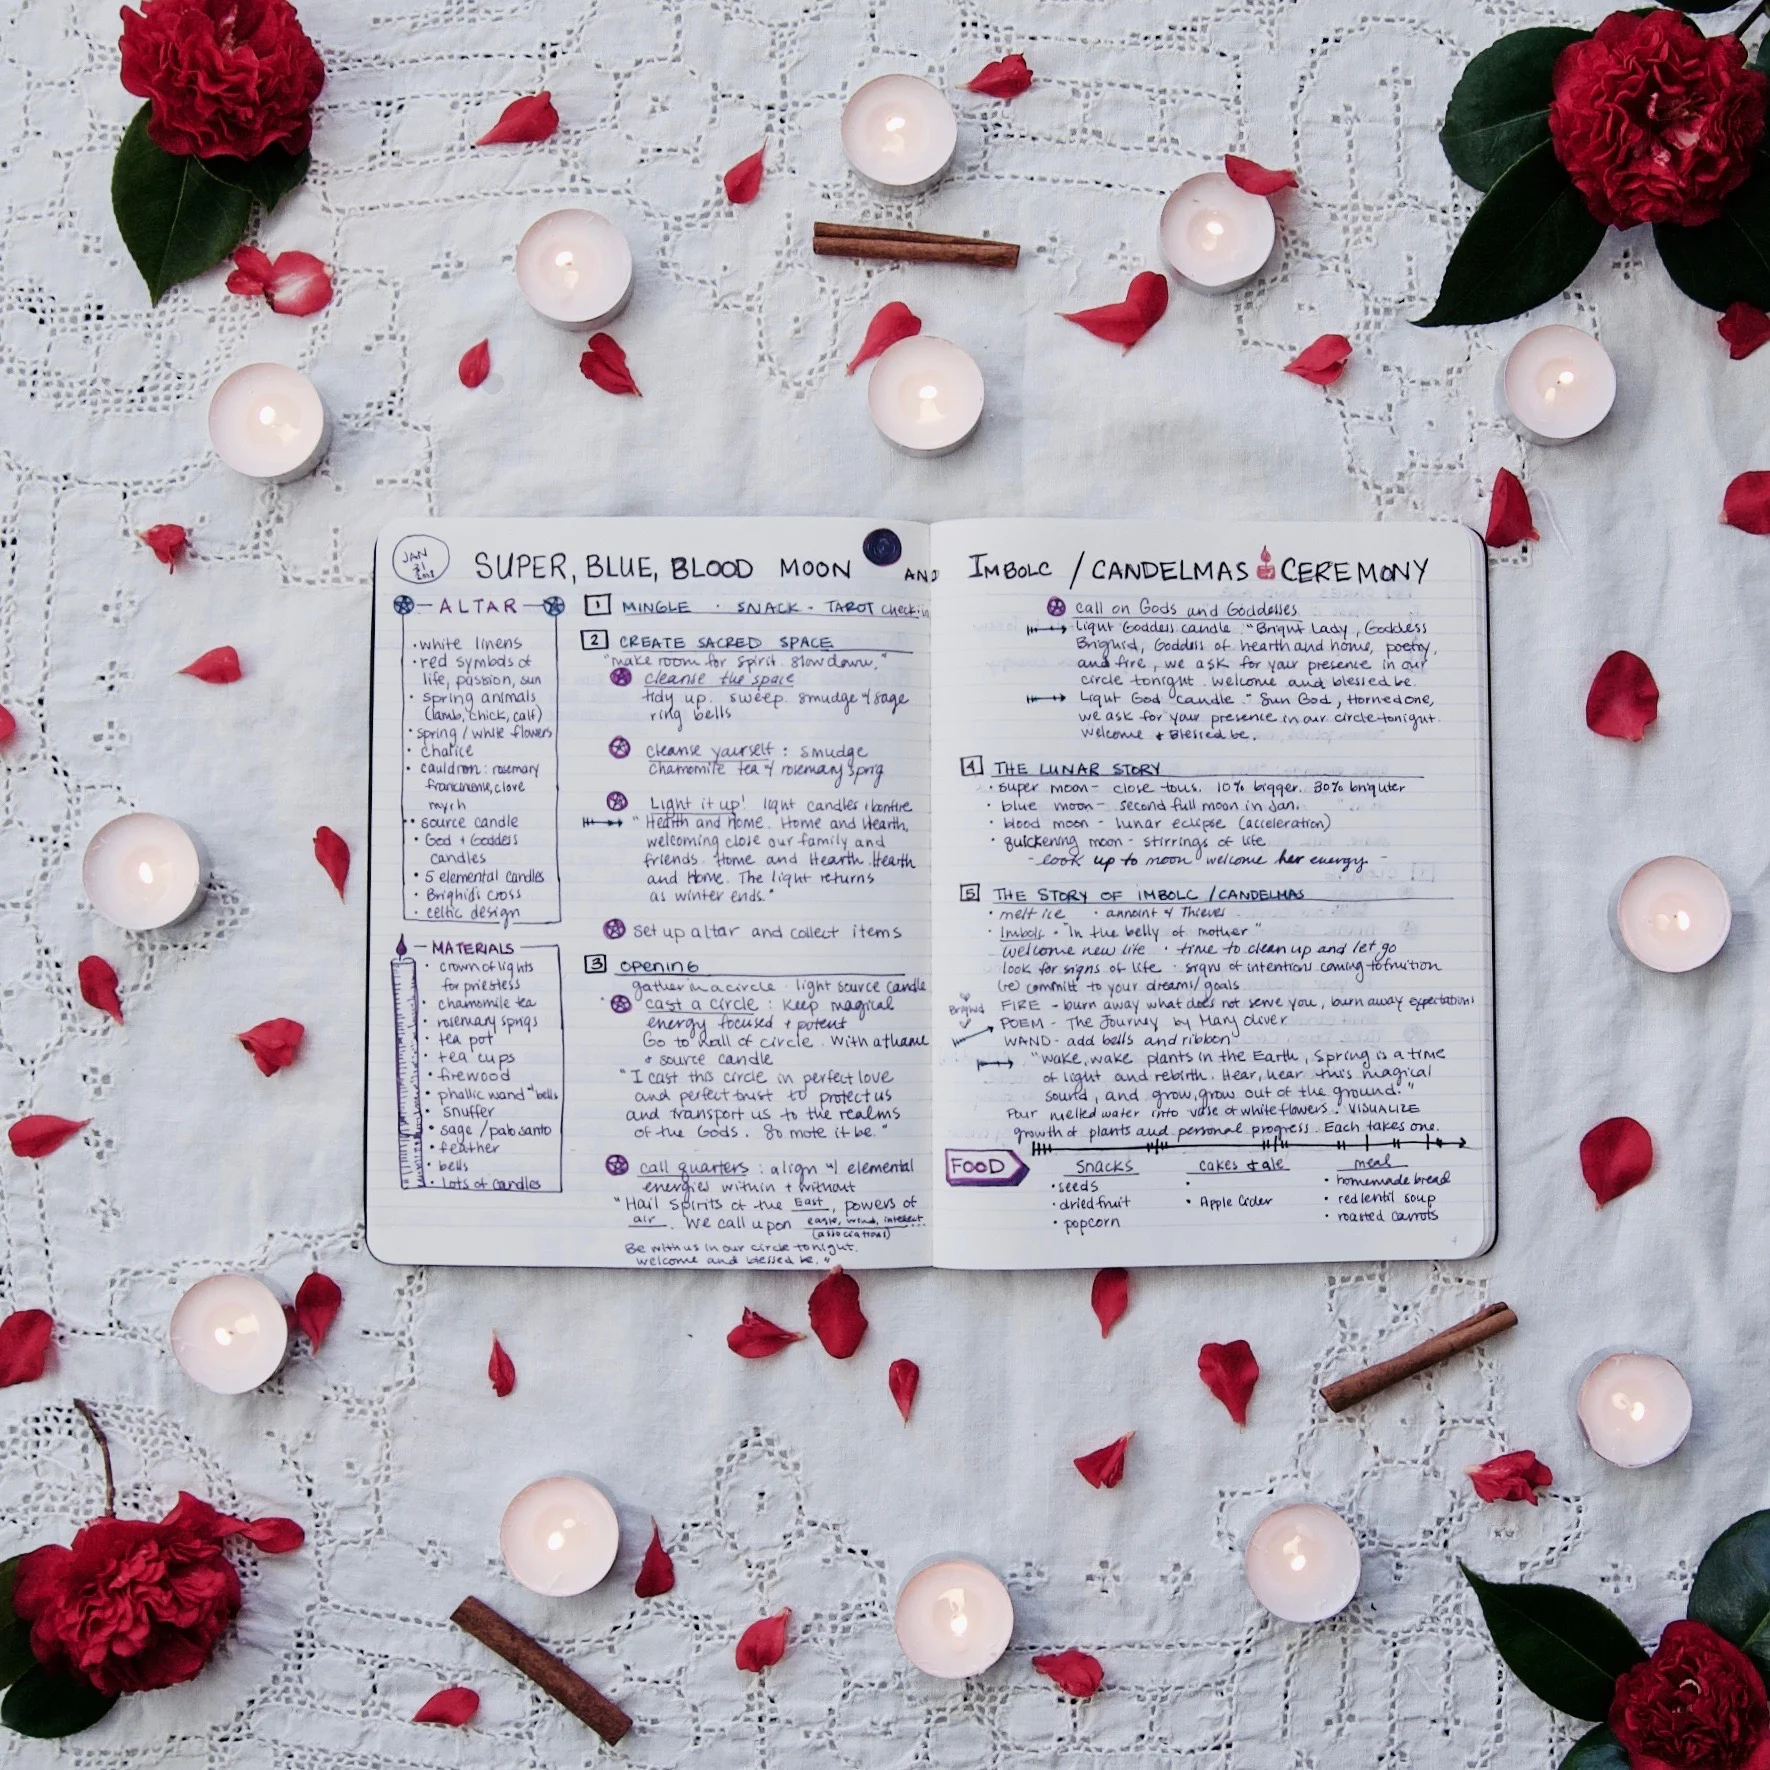 JAN
31
2018
SUPER, BLUE, BLOOD MOON AND
ALTAR
· white linens
· red symbols of
life, passion, sun
· spring animals
(lamb, chick, calf)
· spring / white flowers
· chalice
· cauldron: rosemary
frankincense, clove
myrh
· source candle
· God + Goddess
candles
· 5 elemental candles
· Brighid's cross
· celtic design
MATERIALS
· crown of lights
for priestess
· chamomile tea
· rosemary sprigs
· tea pot
· tea cups
· firewood
· phallic wand + bells
· snuffer
· sage / palo santo
· feather
· bells
· Lots of candles
1 MINGLE · SNACK · TAROT check in
2 CREATE SACRED SPACE
"make room for spirit. Slow down."
cleanse the space
tidy up. sweep. smudge w/ sage
ring bells
cleanse yourself : smudge
chamomile tea w/ rosemary sprig
Light it up! light candles · bonfire
"Hearth and home. Home and Hearth,
welcoming close our family and
friends. Home and Hearth. Hearth
and Home. The light returns
as winter ends."
set up altar and collect items
3 OPENING
gather in a circle · light source candle
cast a circle : Keep magical
energy focused + potent
Go to wall of circle. With athame
+ source candle
"I cast this circle in perfect love
and perfect trust to protect us
and transport us to the realms
of the Gods. So mote it be."
call quarters : align w/ elemental
energies within + without
"Hail Spirits of the East, powers of
air. We call upon eagle, wind, intellect...
(associations)
Be with us in our circle tonight.
welcome and blessed be."
IMBOLC / CANDELMAS CEREMONY
call on Gods and Goddesses
Light Goddess candle. "Bright Lady, Goddess
Brighid, Goddess of hearth and home, poetry,
and fire, we ask for your presence in our
circle tonight. welcome and blessed be.
Light God candle. "Sun God, Horned one,
we ask for your presence in our circle tonight.
Welcome + Blessed be.
4 THE LUNAR STORY
· super moon - close to us. 10% bigger. 30% brighter
· blue moon - second full moon in Jan.
· blood moon - lunar eclipse (acceleration)
· quickening moon - stirrings of life
- look up to moon welcome her energy -
5 THE STORY OF IMBOLC / CANDELMAS
· melt ice · annoint w/ Thieves
· Imbolc · "In the belly of mother"
welcome new life · time to clean up and let go
look for signs of life : signs of intentions coming to fruition
(re) commit to your dreams / goals
FIRE - burn away what does not serve you, burn away expectations
Brighid
POEM - The Journey by Mary Oliver
WAND - add bells and ribbon
"wake, wake plants in the Earth, Spring is a time
of light and rebirth. Hear, hear this magical
sound, and grow, grow out of the ground."
Pour melted water into vase of white flowers. VISUALIZE
growth of plants and personal progress. Each takes one.
FOOD
Snacks
· seeds
· dried fruit
· popcorn
cakes + ale
·
· Apple Cider
meal
· homemade bread
· red lentil soup
· roasted carrots